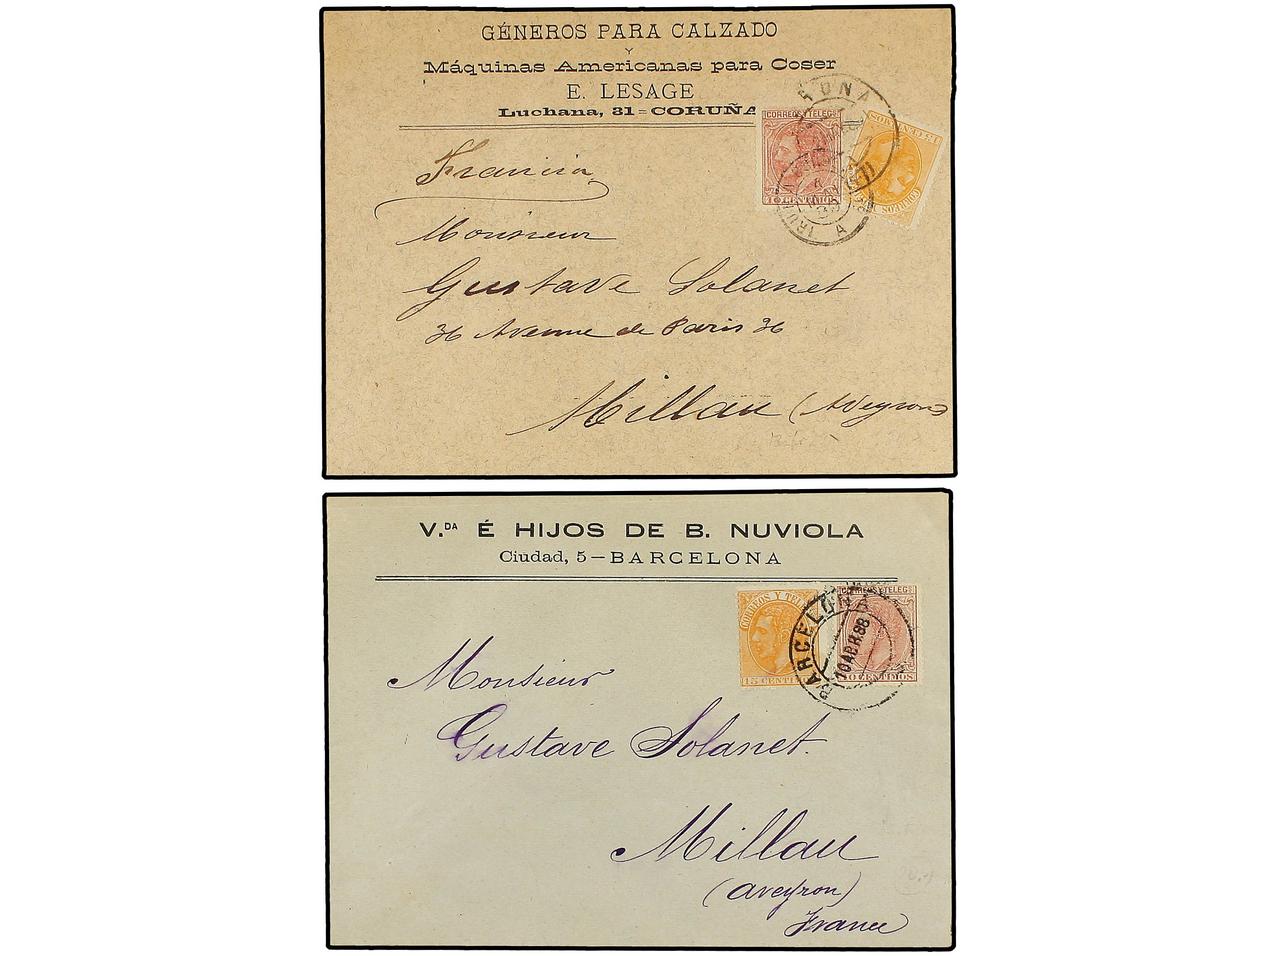 GÉNEROS PARA CALZADO
Y
Máquinas Americanas para Coser
E. LESAGE
Luchana, 31 = CORUÑA
CORREOS Y TELEG
10 CENTIMOS
15 CENTIMOS
Francia
Monsieur
Gustave Solanet
36 Avenue de Paris 36
Millau (Aveyron)
V.DA É HIJOS DE B. NUVIOLA
Ciudad, 5 — BARCELONA
CORREOS Y TELE
15 CENTI
CORREOS Y TELEG
10 CENTIMOS
BARCELONA
10 ABR 88
Monsieur
Gustave Solanet.
Millau
(Aveyron)
France